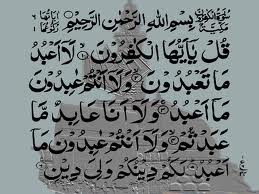 بِسْمِ اللهِ الرَّحْمٰنِ الرَّحِيْمِ
قُلْ يٰٓاَيُّهَا الْكٰفِرُوْنَ ۝۱ لَآ اَعْبُدُ
مَا تَعْبُدُوْنَ ۝۲ وَلَآ اَنْتُمْ عٰبِدُوْنَ
مَآ اَعْبُدُ ۝۳ وَلَآ اَنَا عَابِدٌ مَّا
عَبَدْتُّمْ ۝۴ وَلَآ اَنْتُمْ عٰبِدُوْنَ مَآ
اَعْبُدُ ۝۵ لَكُمْ دِيْنُكُمْ وَلِيَ دِيْنِ